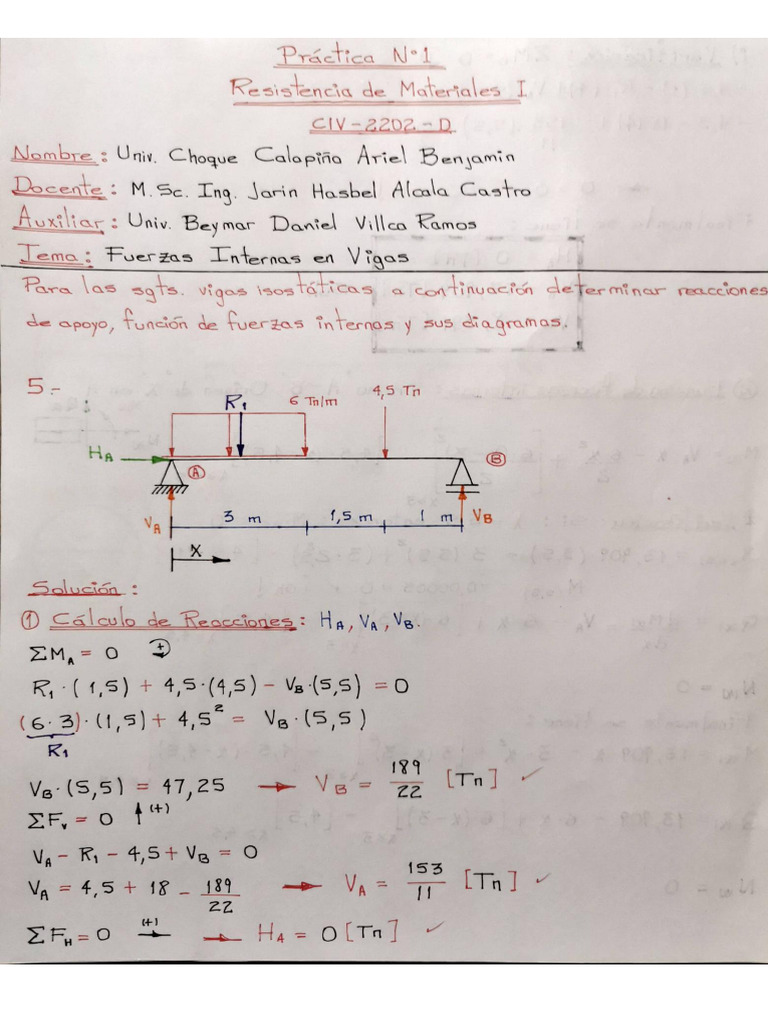 Práctica N°1
Resistencia de Materiales I
CIV-2202-D
Nombre: Univ. Choque Calapiña Ariel Benjamin
Docente: M.Sc. Ing. Jarin Hasbel Alcala Castro
Auxiliar: Univ. Beymar Daniel Villca Ramos
Tema: Fuerzas Internas en Vigas
Para las sgts. vigas isostáticas a continuación determinar reacciones
de apoyo, función de fuerzas internas y sus diagramas.
5.-
R₁ 6 Tn/m 4,5 Tn
H_A A B
V_A 3 m 1,5 m 1 m V_B
X
Solución:
① Cálculo de Reacciones: H_A, V_A, V_B.
ΣM_A = 0 (+)
R₁·(1,5) + 4,5·(4,5) - V_B·(5,5) = 0
(6·3)·(1,5) + 4,5² = V_B·(5,5)
R₁
V_B·(5,5) = 47,25 → V_B = 189/22 [Tn] ✓
ΣF_V = 0 ↑(+)
V_A - R₁ - 4,5 + V_B = 0
V_A = 4,5 + 18 - 189/22 → V_A = 153/11 [Tn] ✓
ΣF_H = 0 (+)→ → H_A = 0 [Tn] ✓